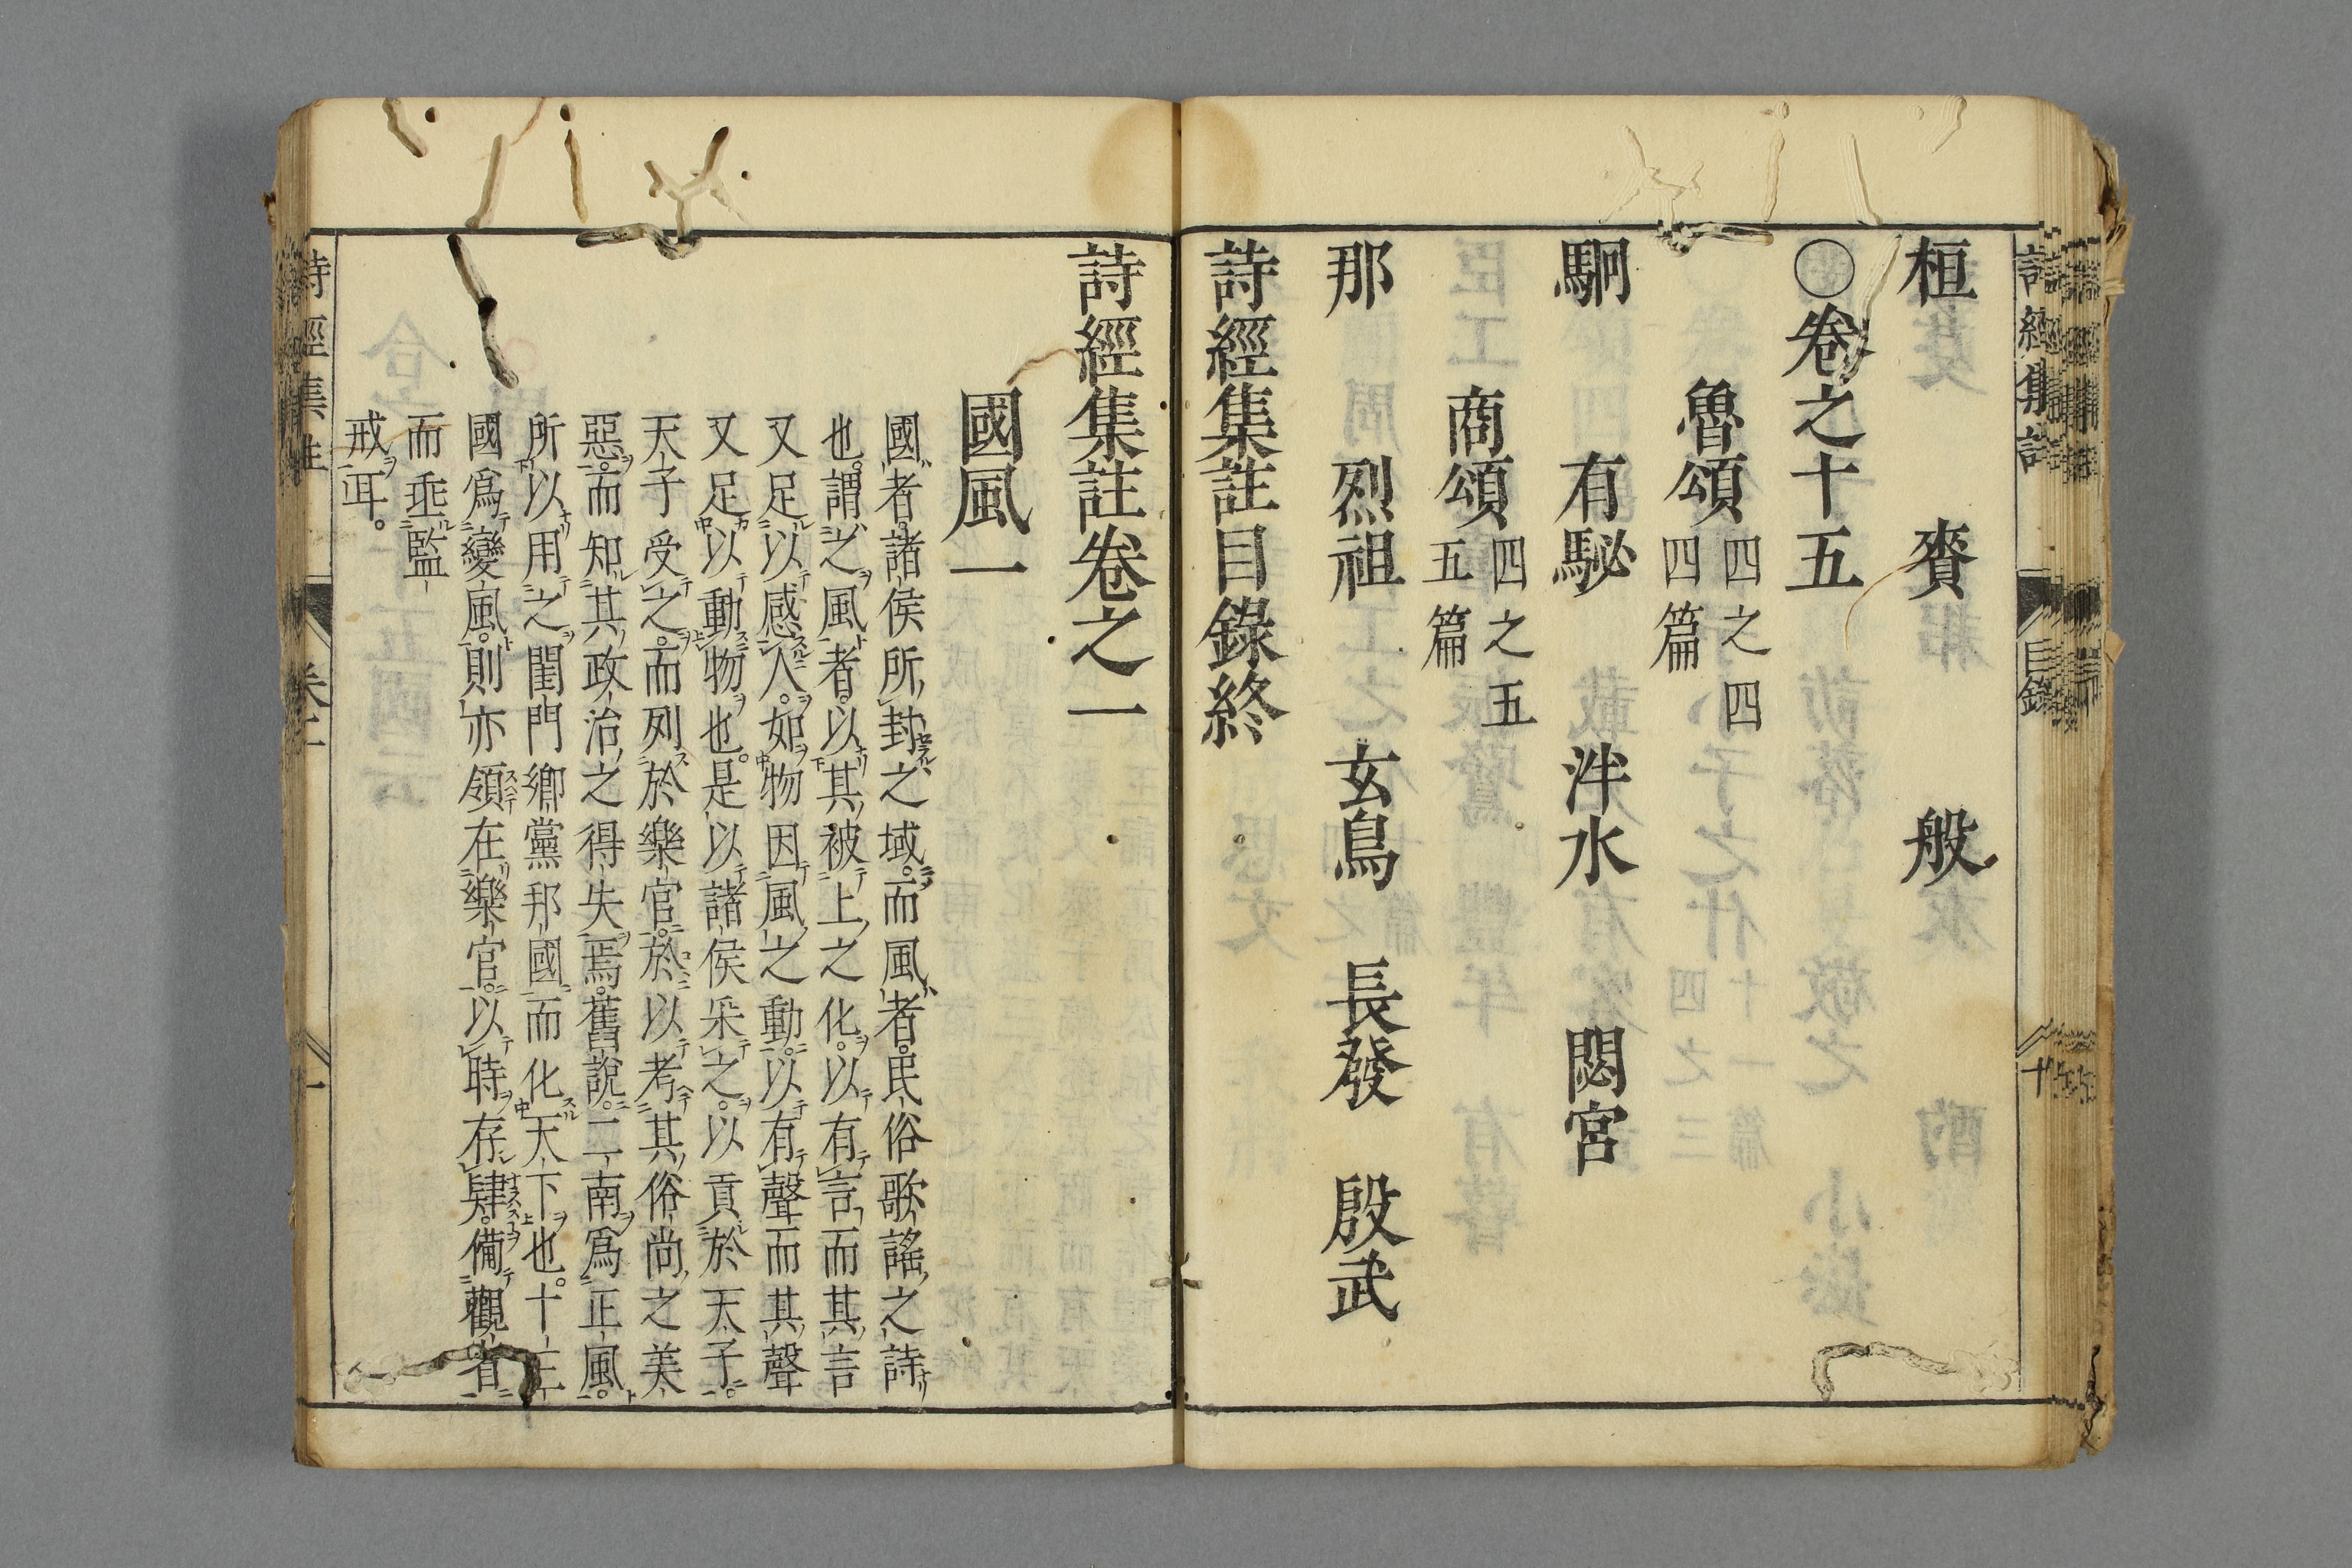 桓 賚 般
〇卷之十五
魯頌 四之四 四篇
駉 有駜 泮水 閟宮
商頌 四之五 五篇
那 烈祖 玄鳥 長發 殷武
詩經集註目錄終
詩經集註卷之一
國風一
國者。諸侯所封之域。而風者。民俗歌謠之詩
也。謂之風者。以其被上之化。以有言。而其言
又足以感人。如物因風之動。以有聲。而其聲
又足以動物也。是以諸侯采之。以貢於天子。
天子受之。而列於樂官。於以考其俗尚之美
惡。而知其政治之得失焉。舊說。二南爲正風。
所以用之閨門鄉黨邦國而化天下也。十三
國爲變風。則亦領在樂官。以時存肄。備觀省
而垂監
戒耳。